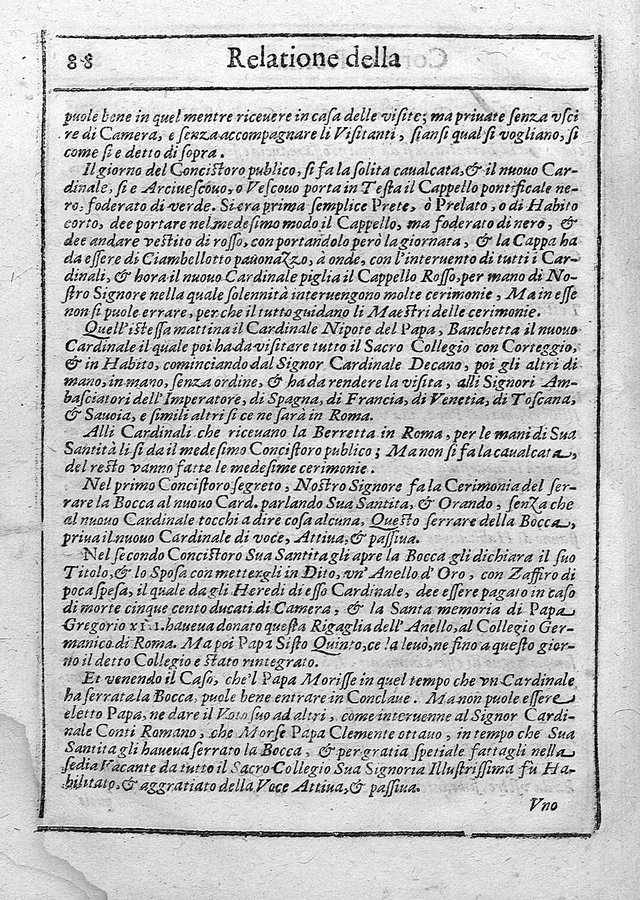 88 Relatione della
puole bene in quel mentre riceuere in casa delle visite; ma priuate senza vsci
re di Camera, e senza accompagnare li Visitanti, siansi qual si vogliano, si
come si e detto di sopra.
Il giorno del Concistoro publico, si fa la solita caualcata, & il nuouo Car-
dinale, si e Arciuescouo, o Vescouo porta in Testa il Cappello pontificale ne-
ro, foderato di verde. Si era prima semplice Prete, ò Prelato, o di Habito
corto, dee portare nel medesimo modo il Cappello, ma foderato di nero, &
dee andare vestito di rosso, con portandolo però la giornata, & la Cappa ha
da essere di Ciambellotto pauonazzo, à onde, con l'interuento di tutti i Car-
dinali, & hora il nuouo Cardinale piglia il Cappello Rosso, per mano di No-
stro Signore nella quale solennità interuengono molte cerimonie, Ma in esse
non si puole errare, per che il tutto guidano li Maestri delle cerimonie.
Quell'istessa mattina il Cardinale Nipote del Papa, Banchetta il nuouo
Cardinale il quale poi ha da visitare tutto il Sacro Collegio con Corteggio,
& in Habito, cominciando dal Signor Cardinale Decano, poi gli altri di
mano, in mano, senza ordine, & ha da rendere la visita, alli Signori Am-
basciatori dell'Imperatore, di Spagna, di Francia, di Venetia, di Toscana,
& Sauoia, e simili altri si ce ne sarà in Roma.
Alli Cardinali che riceuano la Berretta in Roma, per le mani di Sua
Santità li si da il medesimo Concistoro publico; Ma non si fa la caualcata,
del resto vanno fatte le medesime cerimonie.
Nel primo Concistoro segreto, Nostro Signore fa la Cerimonia del ser-
rare la Bocca al nuouo Card. parlando Sua Santita, & Orando, senza che
al nuouo Cardinale tocchi a dire cosa alcuna, Questo serrare della Bocca,
priua il nuouo Cardinale di voce, Attiua, & passiua.
Nel secondo Concistoro Sua Santita gli apre la Bocca gli dichiara il suo
Titolo, & lo Sposa con mettergli in Dito, vn'Anello d'Oro, con Zaffiro di
poca spesa, il quale da gli Heredi di esso Cardinale, dee essere pagato in caso
di morte cinque cento ducati di Camera, & la Santa memoria di Papa
Gregorio xiii. haueua donato questa Rigaglia dell'Anello, al Collegio Ger-
manico di Roma. Ma poi Papa Sisto Quinto, ce la leuò, ne fino a questo gior-
no il detto Collegio e stato rintegrato.
Et venendo il Caso, che'l Papa Morisse in quel tempo che vn Cardinale
ha serrata la Bocca, puole bene entrare in Conclaue. Ma non puole essere
eletto Papa, ne dare il Voto suo ad altri, come interuenne al Signor Cardi-
nale Conti Romano, che Morse Papa Clemente ottauo, in tempo che Sua
Santita gli haueua serrato la Bocca, & per gratia spetiale fattagli nella
sedia Vacante da tutto il Sacro Collegio Sua Signoria Illustrissima fù Ha-
bilitato, & aggratiato della Voce Attiua, & passiua.
Vno